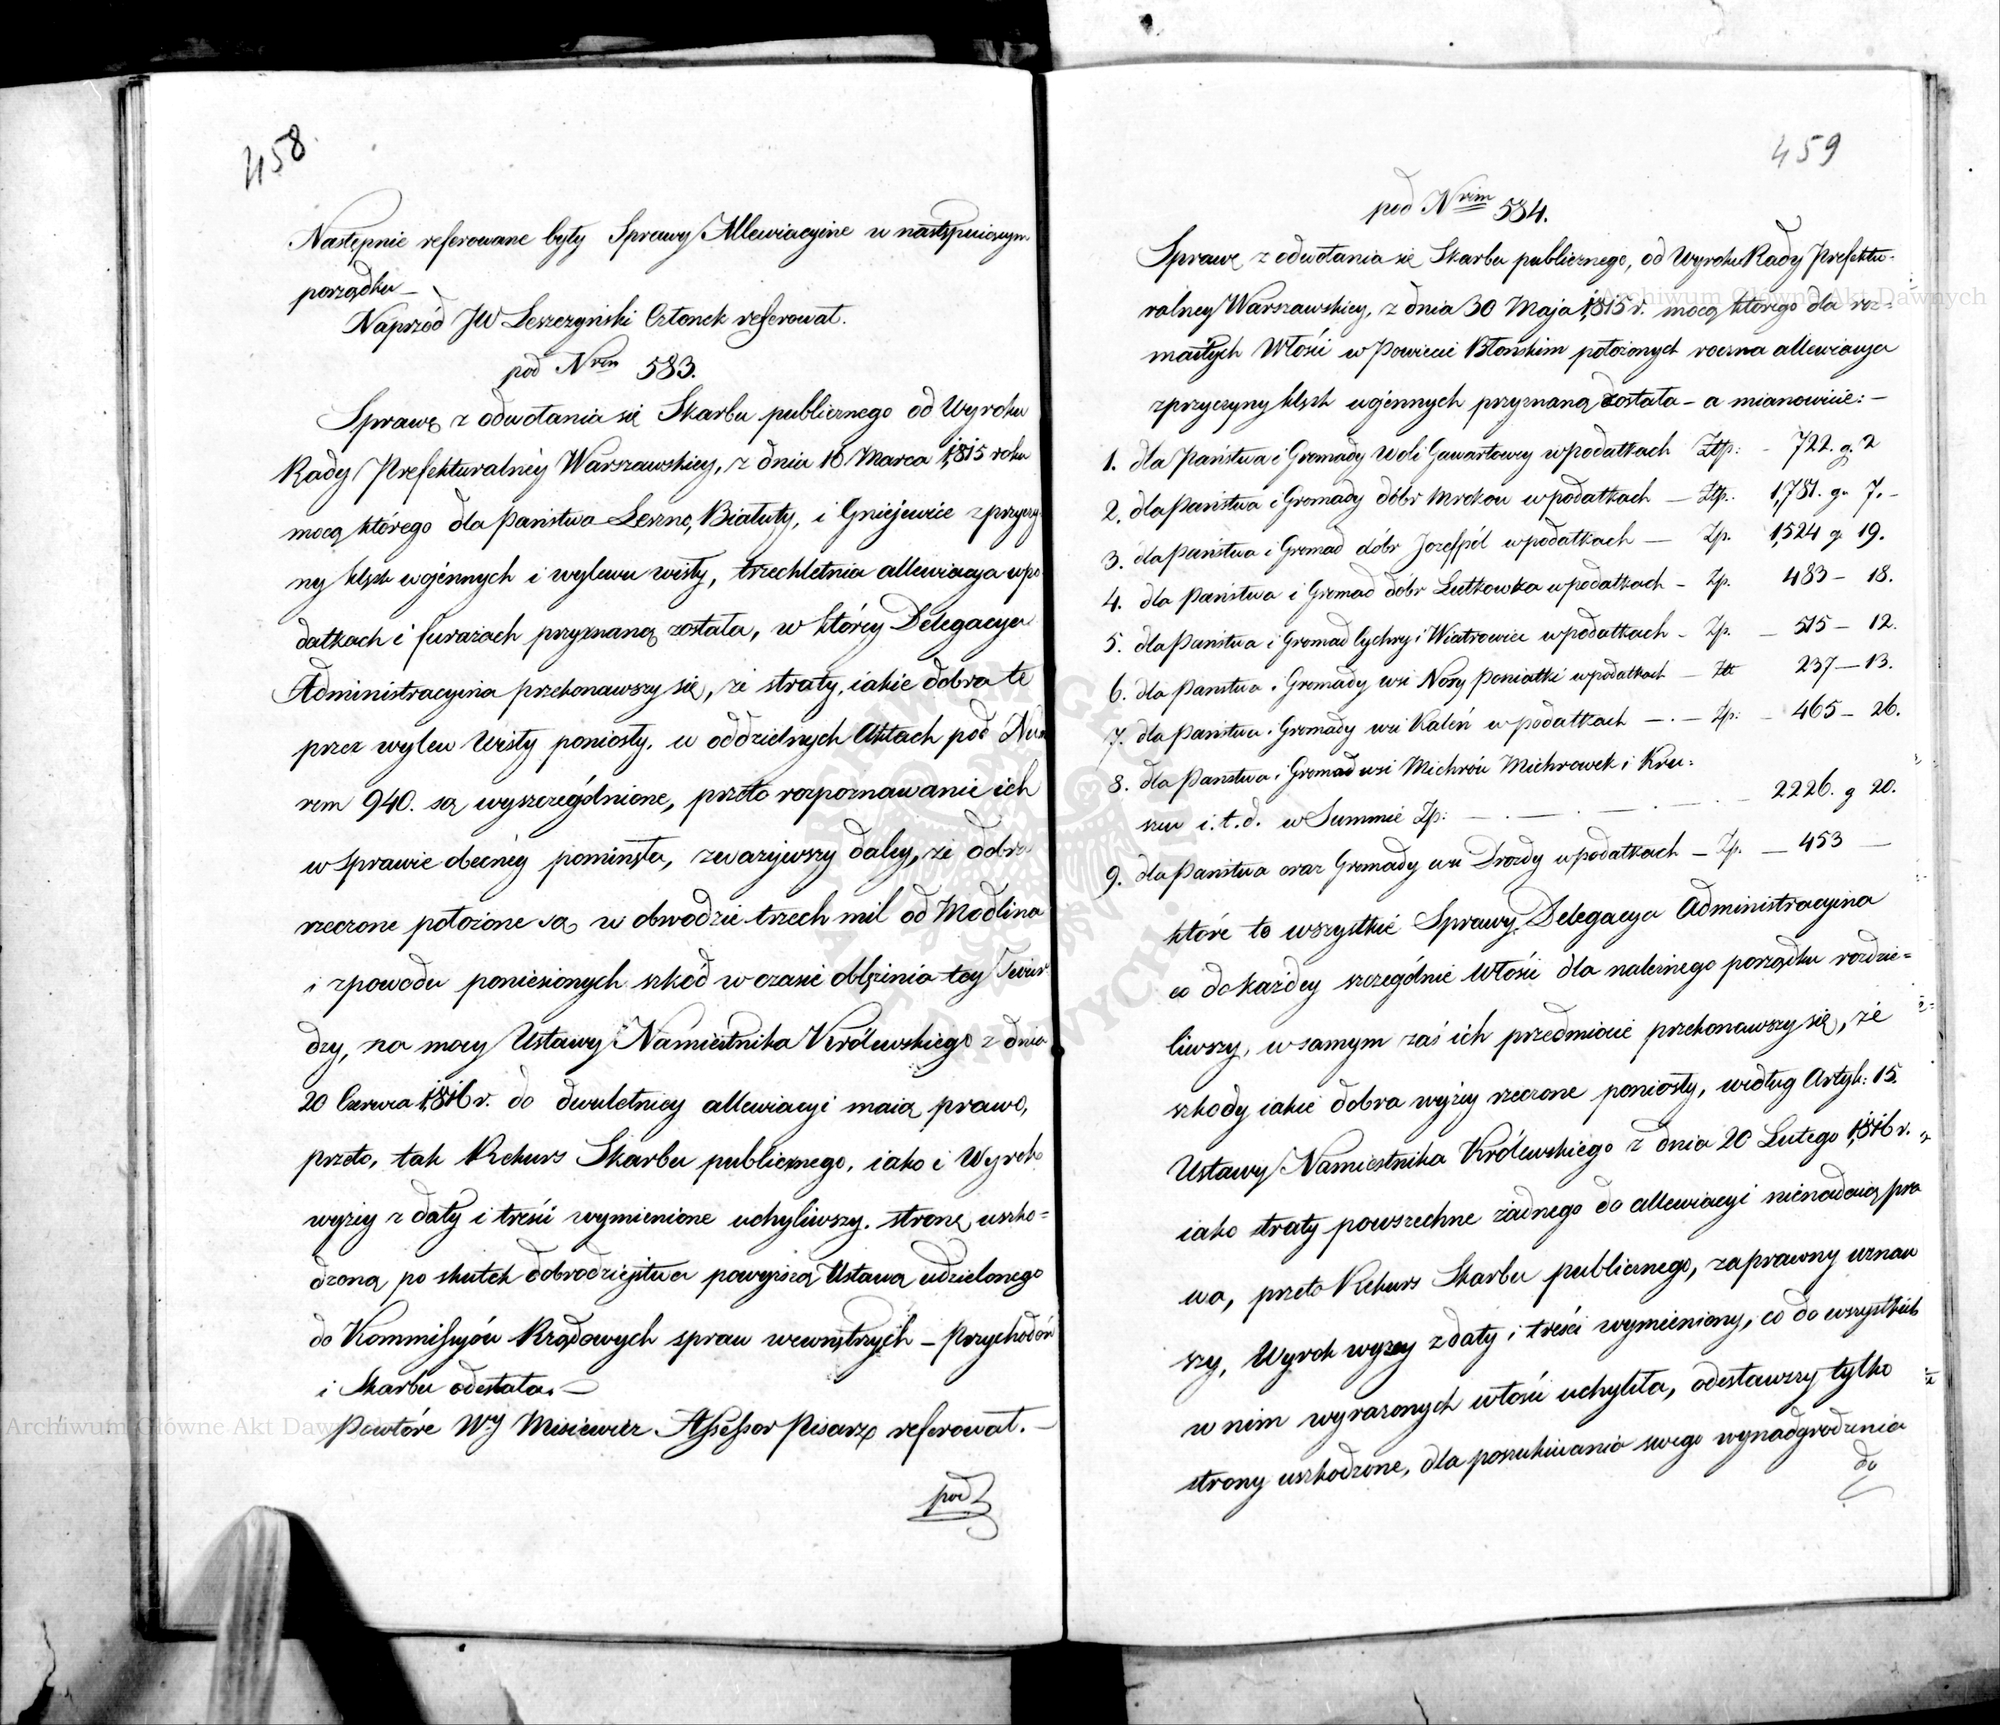 458.
Następnie referowane były Sprawy Allewiacyine w następuiącym
porządku —
Naprzód JW Leszczyński Członek referował.
pod Nrem 583.
Sprawę z odwołania się Skarbu publicznego od Wyroku
Rady Prefekturalnéy Warszawskiey, z dnia 16 Marca 1815 roku
mocą którego dla Państwa Leszno, Białuty, i Gniéjewice z przyczy-
ny klęsk woiennych i wylewu wisły, trzechletnia allewiacya w po-
datkach i furażach przyznaną została, w któréy Delegacya
Administracyina przekonawszy się, że straty, iakie dobra te
przez wylew Wisły poniosły, w oddzielnych Aktach pod Nume
rem 940. są wyszczególnione, przeto rozpoznawanie ich
w sprawie obecnéy pominęła, zważywszy daléy, że dobra
rzeczone położone są w obwodzie trzech mil od Modlina
i z powodu poniesionych szkód w czasie oblężenia téy Twier
dzy, na mocy Ustawy Namiestnika Królewskiego z dnia
20 Czerwca 1816 r. do dwuletniey allewiacyi maią prawo,
przeto, tak Rekurs Skarbu publicznego, iako i Wyrok
wyżéy z daty i treści wymienione uchyliwszy. stronę uszko=
dzoną po skutek dobrodzieystwa powyższą Ustawą udzielonego
do Kommissyów Rządowych spraw wewnętrzych — Przychodów
i Skarbu odesłała. —
Powtóre Wy Misiewicz Assessor Pisarz referował. —
pod
459
pod Nrem 584.
Sprawę z odwołania się Skarbu publicznego, od Wyroku Rady Prefektu-
ralney Warszawskiey, z dnia 30 Maja 1815 r. mocą którego dla roz=
maitych Włości w Powiecie Błońskim położonych roczna allewiacya
z przyczyny klęsk woiennych przyznaną została — a mianowicie: —
1. dla Państwa i Gromady Woli Gawartowey w podatkach Złp: - 722. g. 2
2. dla Państwa i Gromady dóbr Mrokow w podatkach — Złp: 1,781. gr 7. -
3. dla Państwa i Gromad dóbr Jozefpól w podatkach — Zp. 1,524 g 19.
4. dla Państwa i Gromad dóbr Lutkowka w podatkach - Zp. 483 — 18.
5. dla Państwa i Gromad Cychry i Wiatrowiec w podatkach - Zp. — 515 — 12.
6. dla Państwa i Gromady wsi Nosy Poniatki w podatkach — Zł 237 — 13.
7. dla Państwa i Gromady wsi Kaleń w podatkach — . — Zp: — 465 — 26.
8. dla Państwa i Gromad wsi Michrów Michrowek i Kru=
szew i.t.d. w Summie Zp: — . — . — 2226. g 20.
9. dla Państwa oraz Gromady wsi Drozdy w podatkach — Zp. — 453 —
które to wszystkié Sprawy Delegacya Administracyina
co do każdey szczególnie Włości dla należnego porządku rozdzie=
liwszy, w samym zaś ich przedmiocie przekonawszy się, że
szkody iakié dobra wyżéy rzeczone poniosły, według Artyk: 15.
Ustawy Namiestnika Królewskiego z dnia 20 Lutego 1816 r.
iako straty powszechne żadnego do allewiacyi nienadaią pra
wa, przeto Rekurs Skarbu publicznego, za prawny uznaw
szy, Wyrok wyżey z daty i treści wymieniony, co do wszystkich
w nim wyrażonych włości uchyliła, odesławszy tylko
strony uszkodzone, dla poszukiwania swego wynadgrodzenia
do
Archiwum Główne Akt Dawnych
Archiwum Główne Akt Dawnych